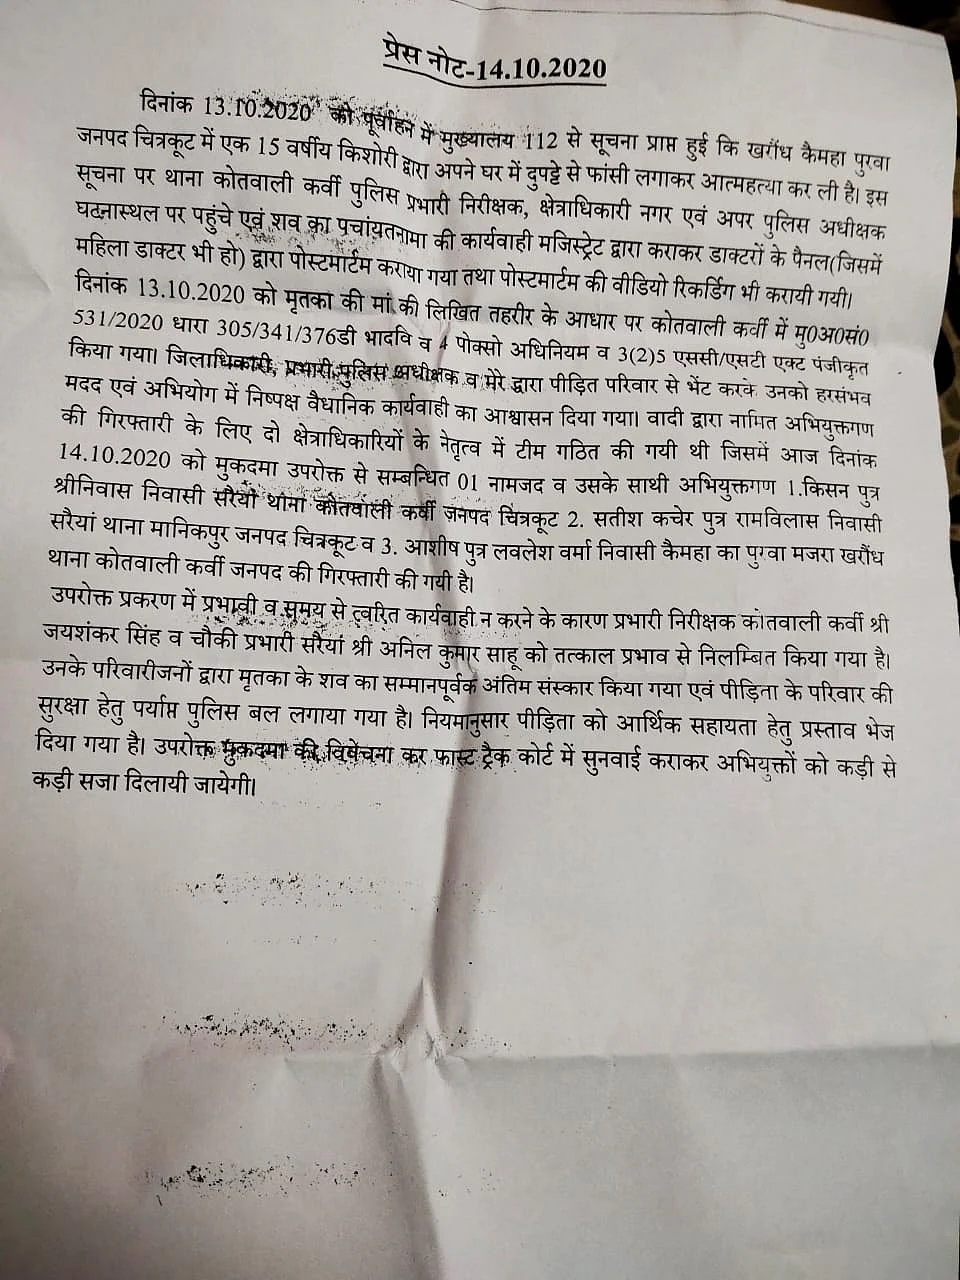 प्रेस नोट-14.10.2020
दिनांक 13.10.2020 को पूर्वाहन में मुख्यालय 112 से सूचना प्राप्त हुई कि खरौंध कैमहा पुरवा
जनपद चित्रकूट में एक 15 वर्षीय किशोरी द्वारा अपने घर में दुपट्टे से फांसी लगाकर आत्महत्या कर ली है। इस
सूचना पर थाना कोतवाली कर्वी पुलिस प्रभारी निरीक्षक, क्षेत्राधिकारी नगर एवं अपर पुलिस अधीक्षक
घटनास्थल पर पहुंचे एवं शव का पचांयतनामा की कार्यवाही मजिस्ट्रेट द्वारा कराकर डाक्टरों के पैनल(जिसमें
महिला डाक्टर भी हो) द्वारा पोस्टमार्टम कराया गया तथा पोस्टमार्टम की वीडियो रिकर्डिग भी करायी गयी।
दिनांक 13.10.2020 को मृतका की मां की लिखित तहरीर के आधार पर कोतवाली कर्वी में मु0अ0सं0
531/2020 धारा 305/341/376डी भादवि व 4 पोक्सो अधिनियम व 3(2)5 एससी/एसटी एक्ट पंजीकृत
किया गया। जिलाधिकारी, प्रभारी पुलिस अधीक्षक व मेरे द्वारा पीड़ित परिवार से भेंट करके उनको हरसंभव
मदद एवं अभियोग में निष्पक्ष वैधानिक कार्यवाही का आश्वासन दिया गया। वादी द्वारा नामित अभियुक्तगण
की गिरफ्तारी के लिए दो क्षेत्राधिकारियों के नेतृत्व में टीम गठित की गयी थी जिसमें आज दिनांक
14.10.2020 को मुकदमा उपरोक्त से सम्बन्धित 01 नामजद व उसके साथी अभियुक्तगण 1.किसन पुत्र
श्रीनिवास निवासी सरैयां थाना कोतवाली कर्वी जनपद चित्रकूट 2. सतीश कचेर पुत्र रामविलास निवासी
सरैयां थाना मानिकपुर जनपद चित्रकूट व 3. आशीष पुत्र लवलेश वर्मा निवासी कैमहा का पुरवा मजरा खरौंध
थाना कोतवाली कर्वी जनपद की गिरफ्तारी की गयी है।
उपरोक्त प्रकरण में प्रभावी व समय से त्वरित कार्यवाही न करने के कारण प्रभारी निरीक्षक कोतवाली कर्वी श्री
जयशंकर सिंह व चौकी प्रभारी सरैयां श्री अनिल कुमार साहू को तत्काल प्रभाव से निलम्बित किया गया है।
उनके परिवारीजनों द्वारा मृतका के शव का सम्मानपूर्वक अंतिम संस्कार किया गया एवं पीड़िता के परिवार की
सुरक्षा हेतु पर्याप्त पुलिस बल लगाया गया है। नियमानुसार पीड़िता को आर्थिक सहायता हेतु प्रस्ताव भेज
दिया गया है। उपरोक्त मुकदमा की विवेचना कर फास्ट ट्रैक कोर्ट में सुनवाई कराकर अभियुक्तों को कड़ी से
कड़ी सजा दिलायी जायेगी।